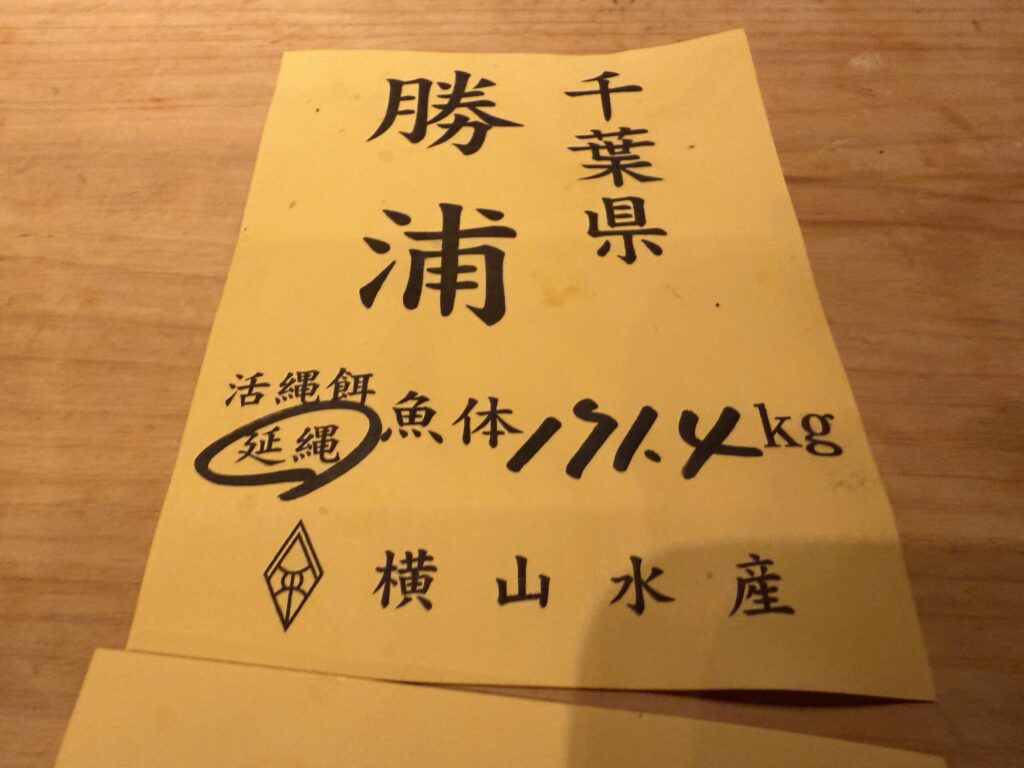 千葉県
勝浦
活縄餌
延縄 魚体 191.4kg
横山水産